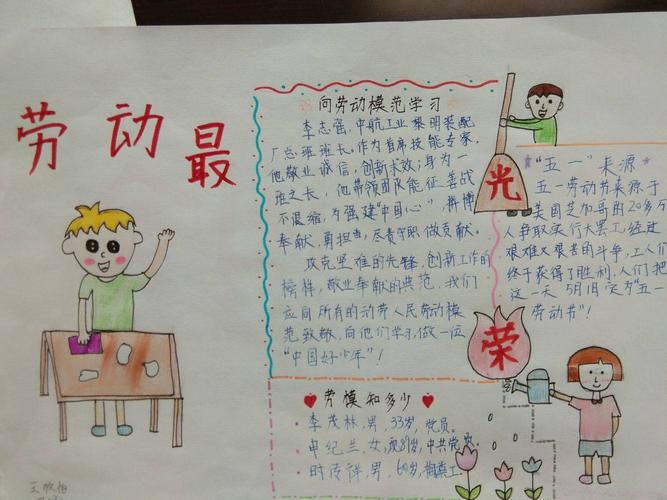 劳动最
光
荣
向劳动模范学习
李志强，中航工业黎明装配
厂总班班长。作为首席技能专家，
他敬业诚信，创新求效；身为一
班之长，他带领团队能征善战
不退缩，为强建“中国心”，拼博
奉献，勇担当，尽责守职做贡献。
攻克坚难的先锋，创新工作的
榜样，敬业奉献的典范，我们
应向所有的动劳人民劳动模
范致敬，向他们学习，做一位
“中国好少年”！
“五一”来源
五一劳动节来源于
美国芝加哥的20多万
人争取实行大罢工，经过
艰难又艰苦的斗争，工人们
终于获得了胜利，人们把
这一天5月1日定为“五一
劳动节”！
劳模知多少
李茂林，男，33岁，党员。
申纪兰，女，81岁，中共党员。
时传祥，男，60岁，掏粪工。